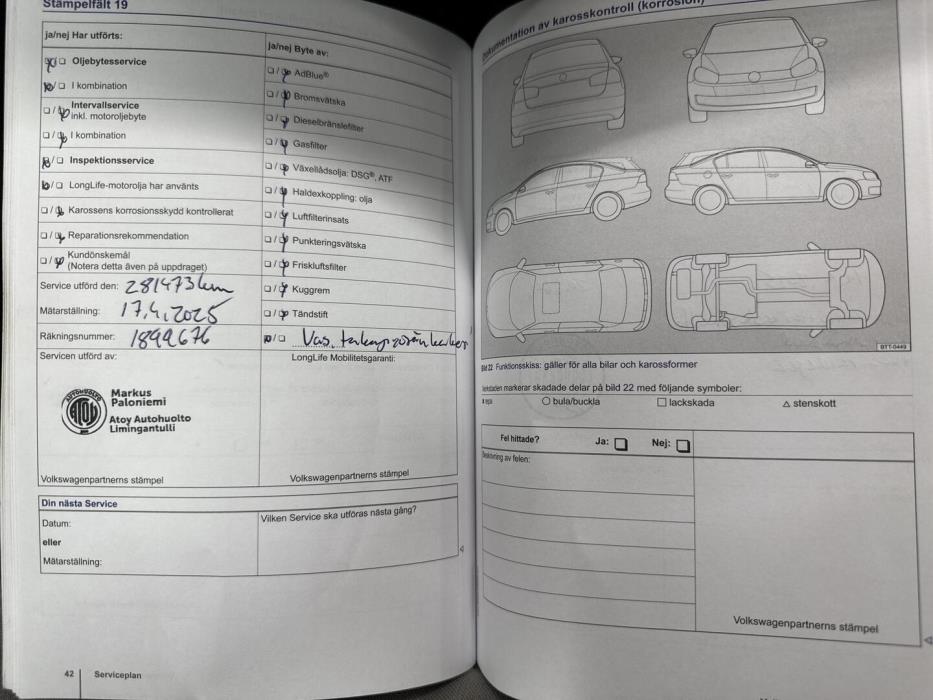 Stämpelfält 19
ja/nej Har utförts:
☒/☐ Oljebytesservice
☒/☐ I kombination
☐/☒ Intervallservice
inkl. motoroljebyte
☐/☒ I kombination
☒/☐ Inspektionsservice
☒/☐ LongLife-motorolja har använts
☐/☒ Karossens korrosionsskydd kontrollerat
☐/☒ Reparationsrekommendation
☐/☒ Kundönskemål
(Notera detta även på uppdraget)
Service utförd den: 281473 km
Mätarställning: 17.4.2025
Räkningsnummer: 1899676
Servicen utförd av:
ATOY AUTOHUOLTO
ATOY
Markus
Paloniemi
Atoy Autohuolto
Limingantulli
Volkswagenpartnerns stämpel
ja/nej Byte av:
☐/☒ AdBlue®
☐/☒ Bromsvätska
☐/☒ Dieselbränslefilter
☐/☒ Gasfilter
☐/☒ Växellådsolja: DSG®, ATF
☐/☒ Haldexkoppling: olja
☐/☒ Luftfilterinsats
☐/☒ Punkteringsvätska
☐/☒ Friskluftsfilter
☐/☒ Kuggrem
☐/☒ Tändstift
☒/☐ Vas.
LongLife Mobilitetsgaranti:
Volkswagenpartnerns stämpel
Din nästa Service
Datum:
eller
Mätarställning:
Vilken Service ska utföras nästa gång?
42 Serviceplan
Dokumentation av karosskontroll (korrosion)
BTT-0449
Bild 22 Funktionsskiss: gäller för alla bilar och karossformer
markerar skadade delar på bild 22 med följande symboler:
○ bula/buckla
☐ lackskada
△ stenskott
Fel hittade?
Ja: ☐
Nej: ☐
av felen:
Volkswagenpartnerns stämpel